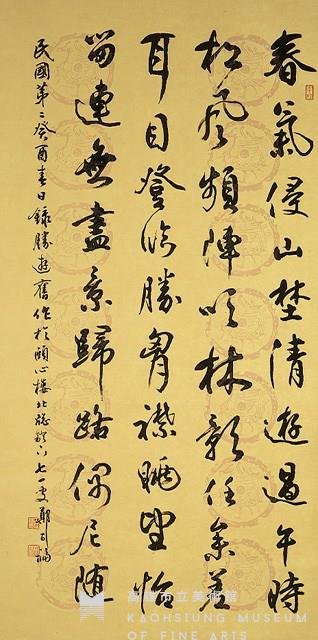 春氣侵山埜清遊過午時
松風頻陣吹林影任參差
耳目登臨勝胷襟眺望怡
畱連無盡景歸路偶尼随
民國第二癸酉春日錄勝遊舊作於頤心樓北牕 七一叟鄭
高雄市立美術館
KAOHSIUNG MUSEUM
OF FINE ARTS